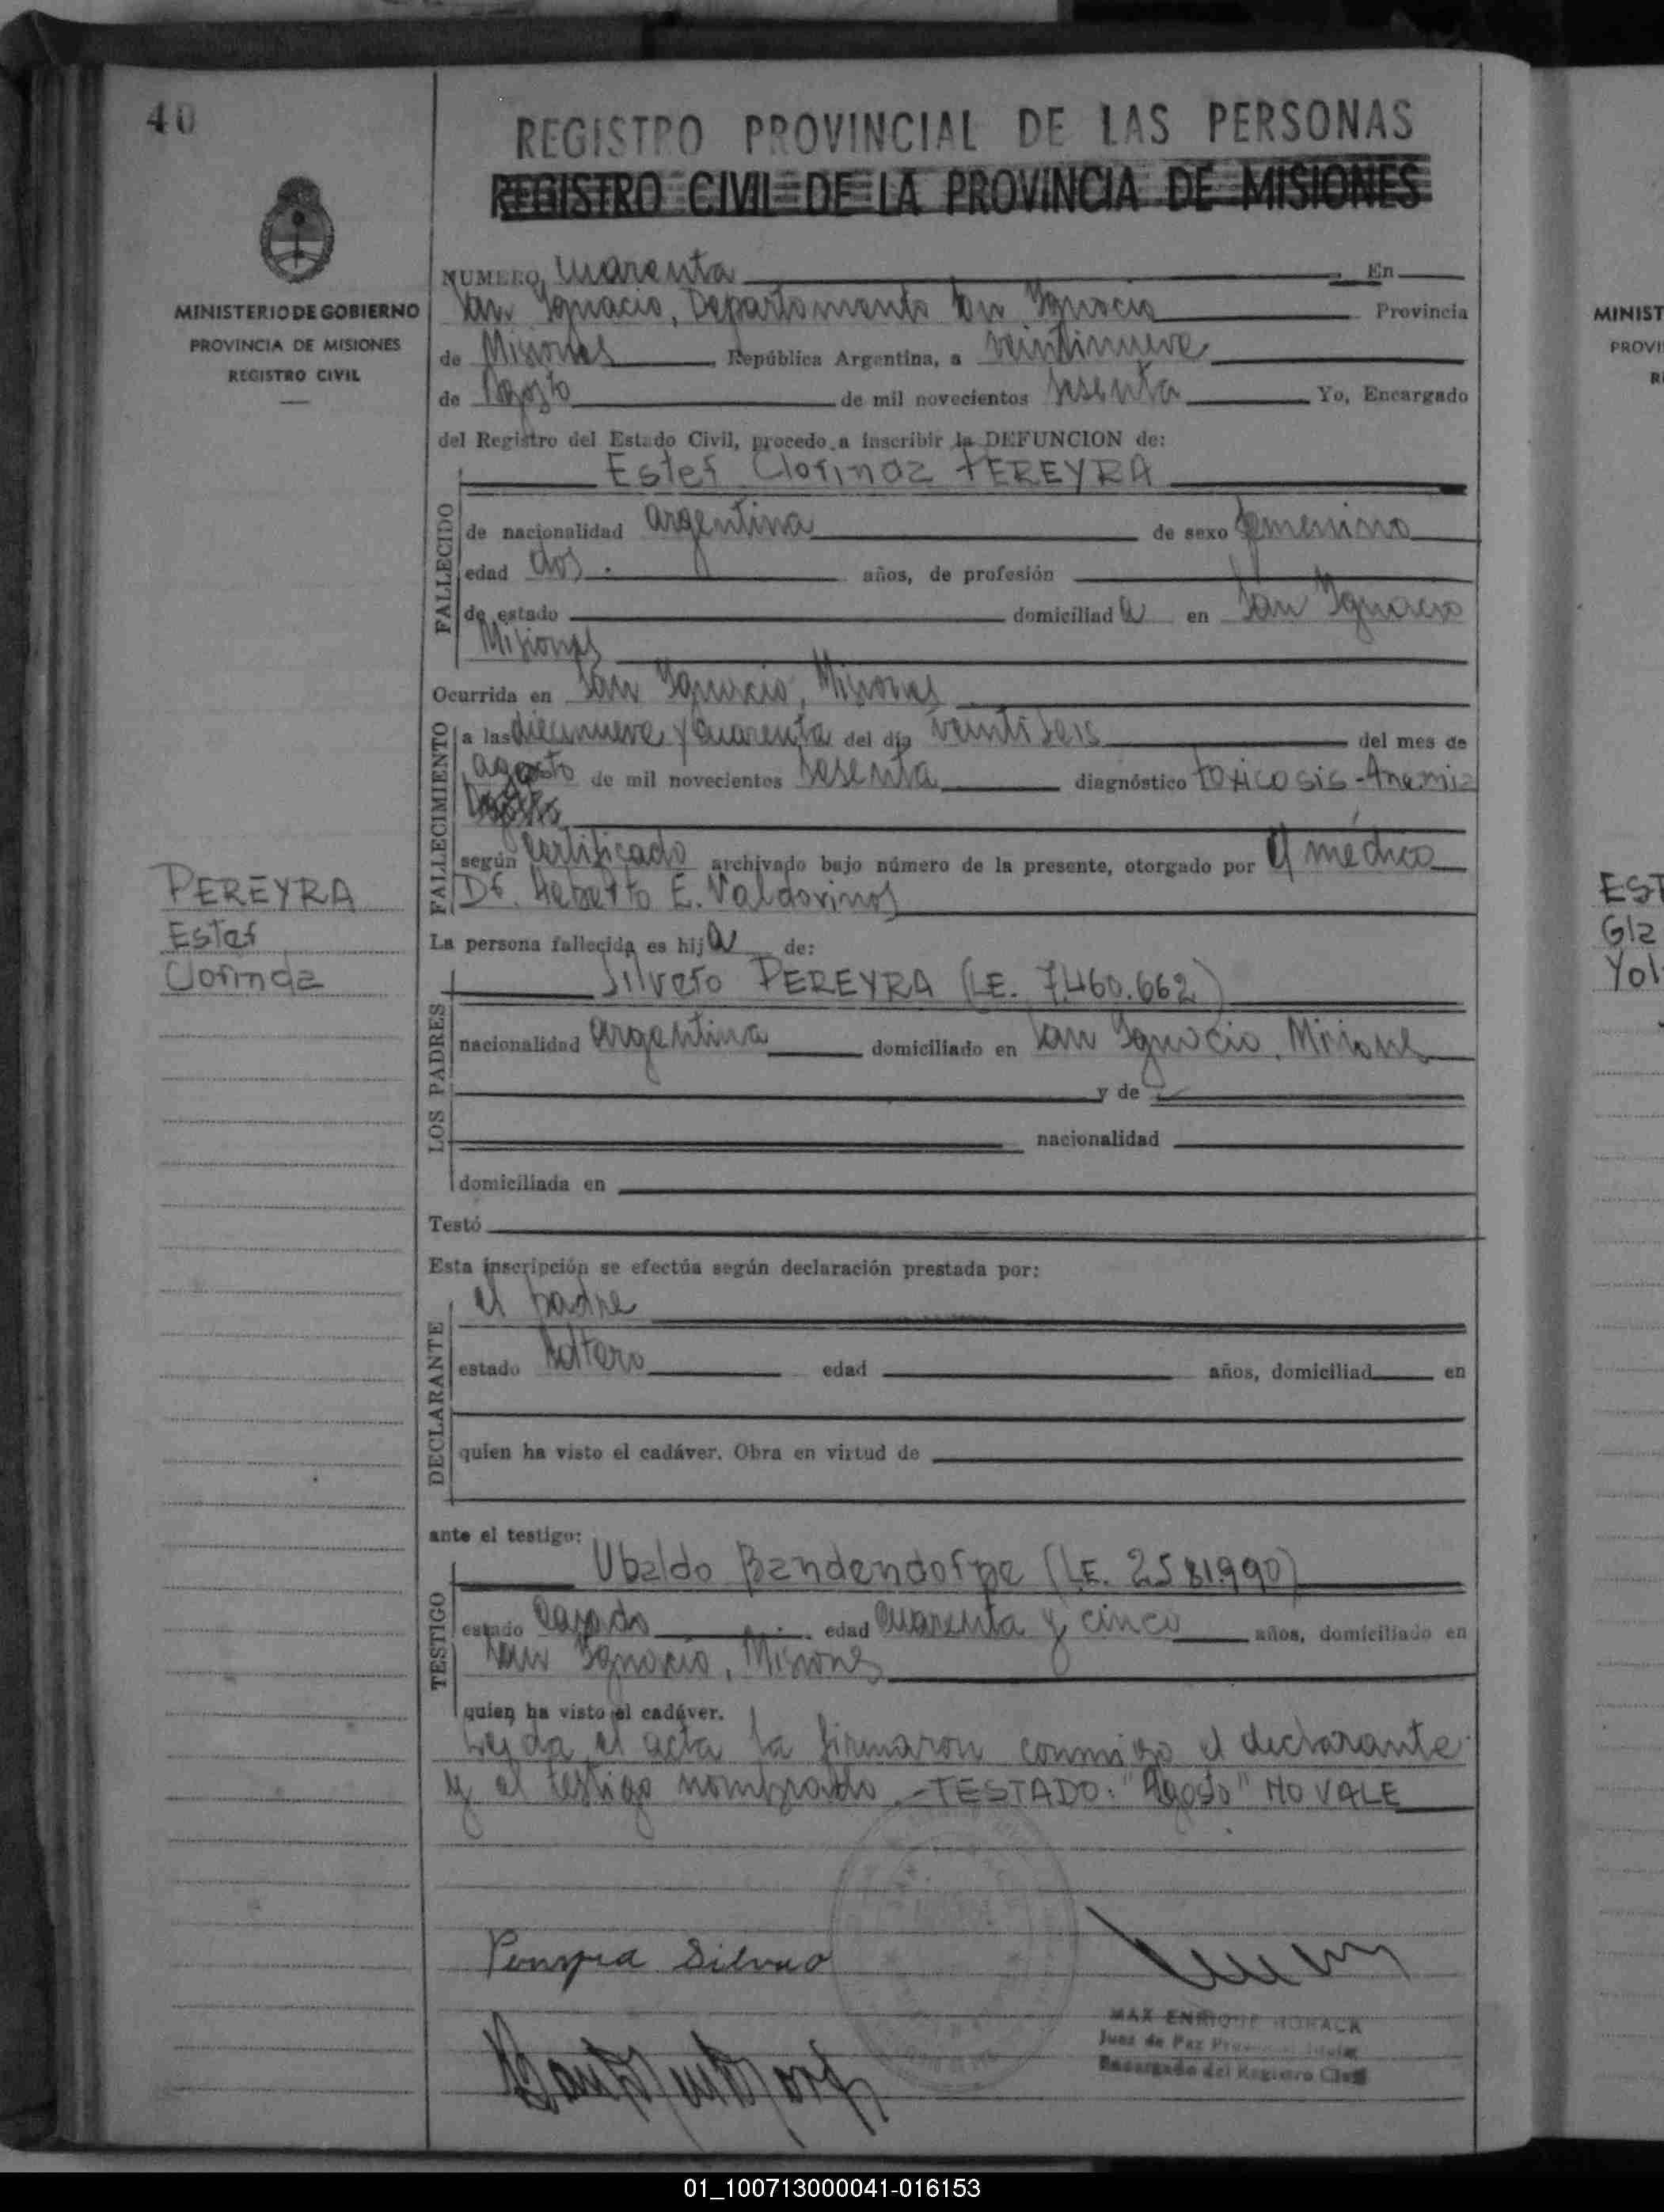 40
REGISTRO PROVINCIAL DE LAS PERSONAS
REGISTRO CIVIL DE LA PROVINCIA DE MISIONES
MINISTERIO DE GOBIERNO
PROVINCIA DE MISIONES
REGISTRO CIVIL
NUMERO cuarenta En
San Ignacio, Departamento San Ignacio Provincia
de Misiones, República Argentina, a veintinueve
de Agosto de mil novecientos sesenta Yo, Encargado
del Registro del Estado Civil, procedo a inscribir la DEFUNCION de:
Ester Clorinda PEREYRA
FALLECIDO
de nacionalidad argentina de sexo femenino
edad dos años, de profesión
de estado domiciliada en San Ignacio
Misiones
Ocurrida en San Ignacio, Misiones
FALLECIMIENTO
a las diecinueve y cuarenta del día veintiseis del mes de
agosto de mil novecientos sesenta diagnóstico toxicosis - Anemia
según certificado archivado bajo número de la presente, otorgado por el médico
Dr. Heberto E. Valdovinos
PEREYRA
Ester
Clorinda
La persona fallecida es hija de:
LOS PADRES
Silvero PEREYRA (LE. 7.460.662)
nacionalidad argentina domiciliado en San Ignacio, Misiones
y de
nacionalidad
domiciliada en
Testó
Esta inscripción se efectúa según declaración prestada por:
DECLARANTE
el padre
estado soltero edad años, domiciliad en
quien ha visto el cadáver. Obra en virtud de
ante el testigo:
TESTIGO
Ubaldo Bandendorpe (LE. 2581.990)
estado casado edad cuarenta y cinco años, domiciliado en
San Ignacio, Misiones
quien ha visto el cadáver.
Leida el acta la firmaron conmigo el declarante
y el testigo nombrado.-TESTADO: "Agosto" NO VALE
Pereyra Silvero
MAX ENRIQUE HORACK
Juez de Paz
Encargado del Registro Civil
MINIST
PROVI
R
EST
Gla
Yol
01_100713000041-016153